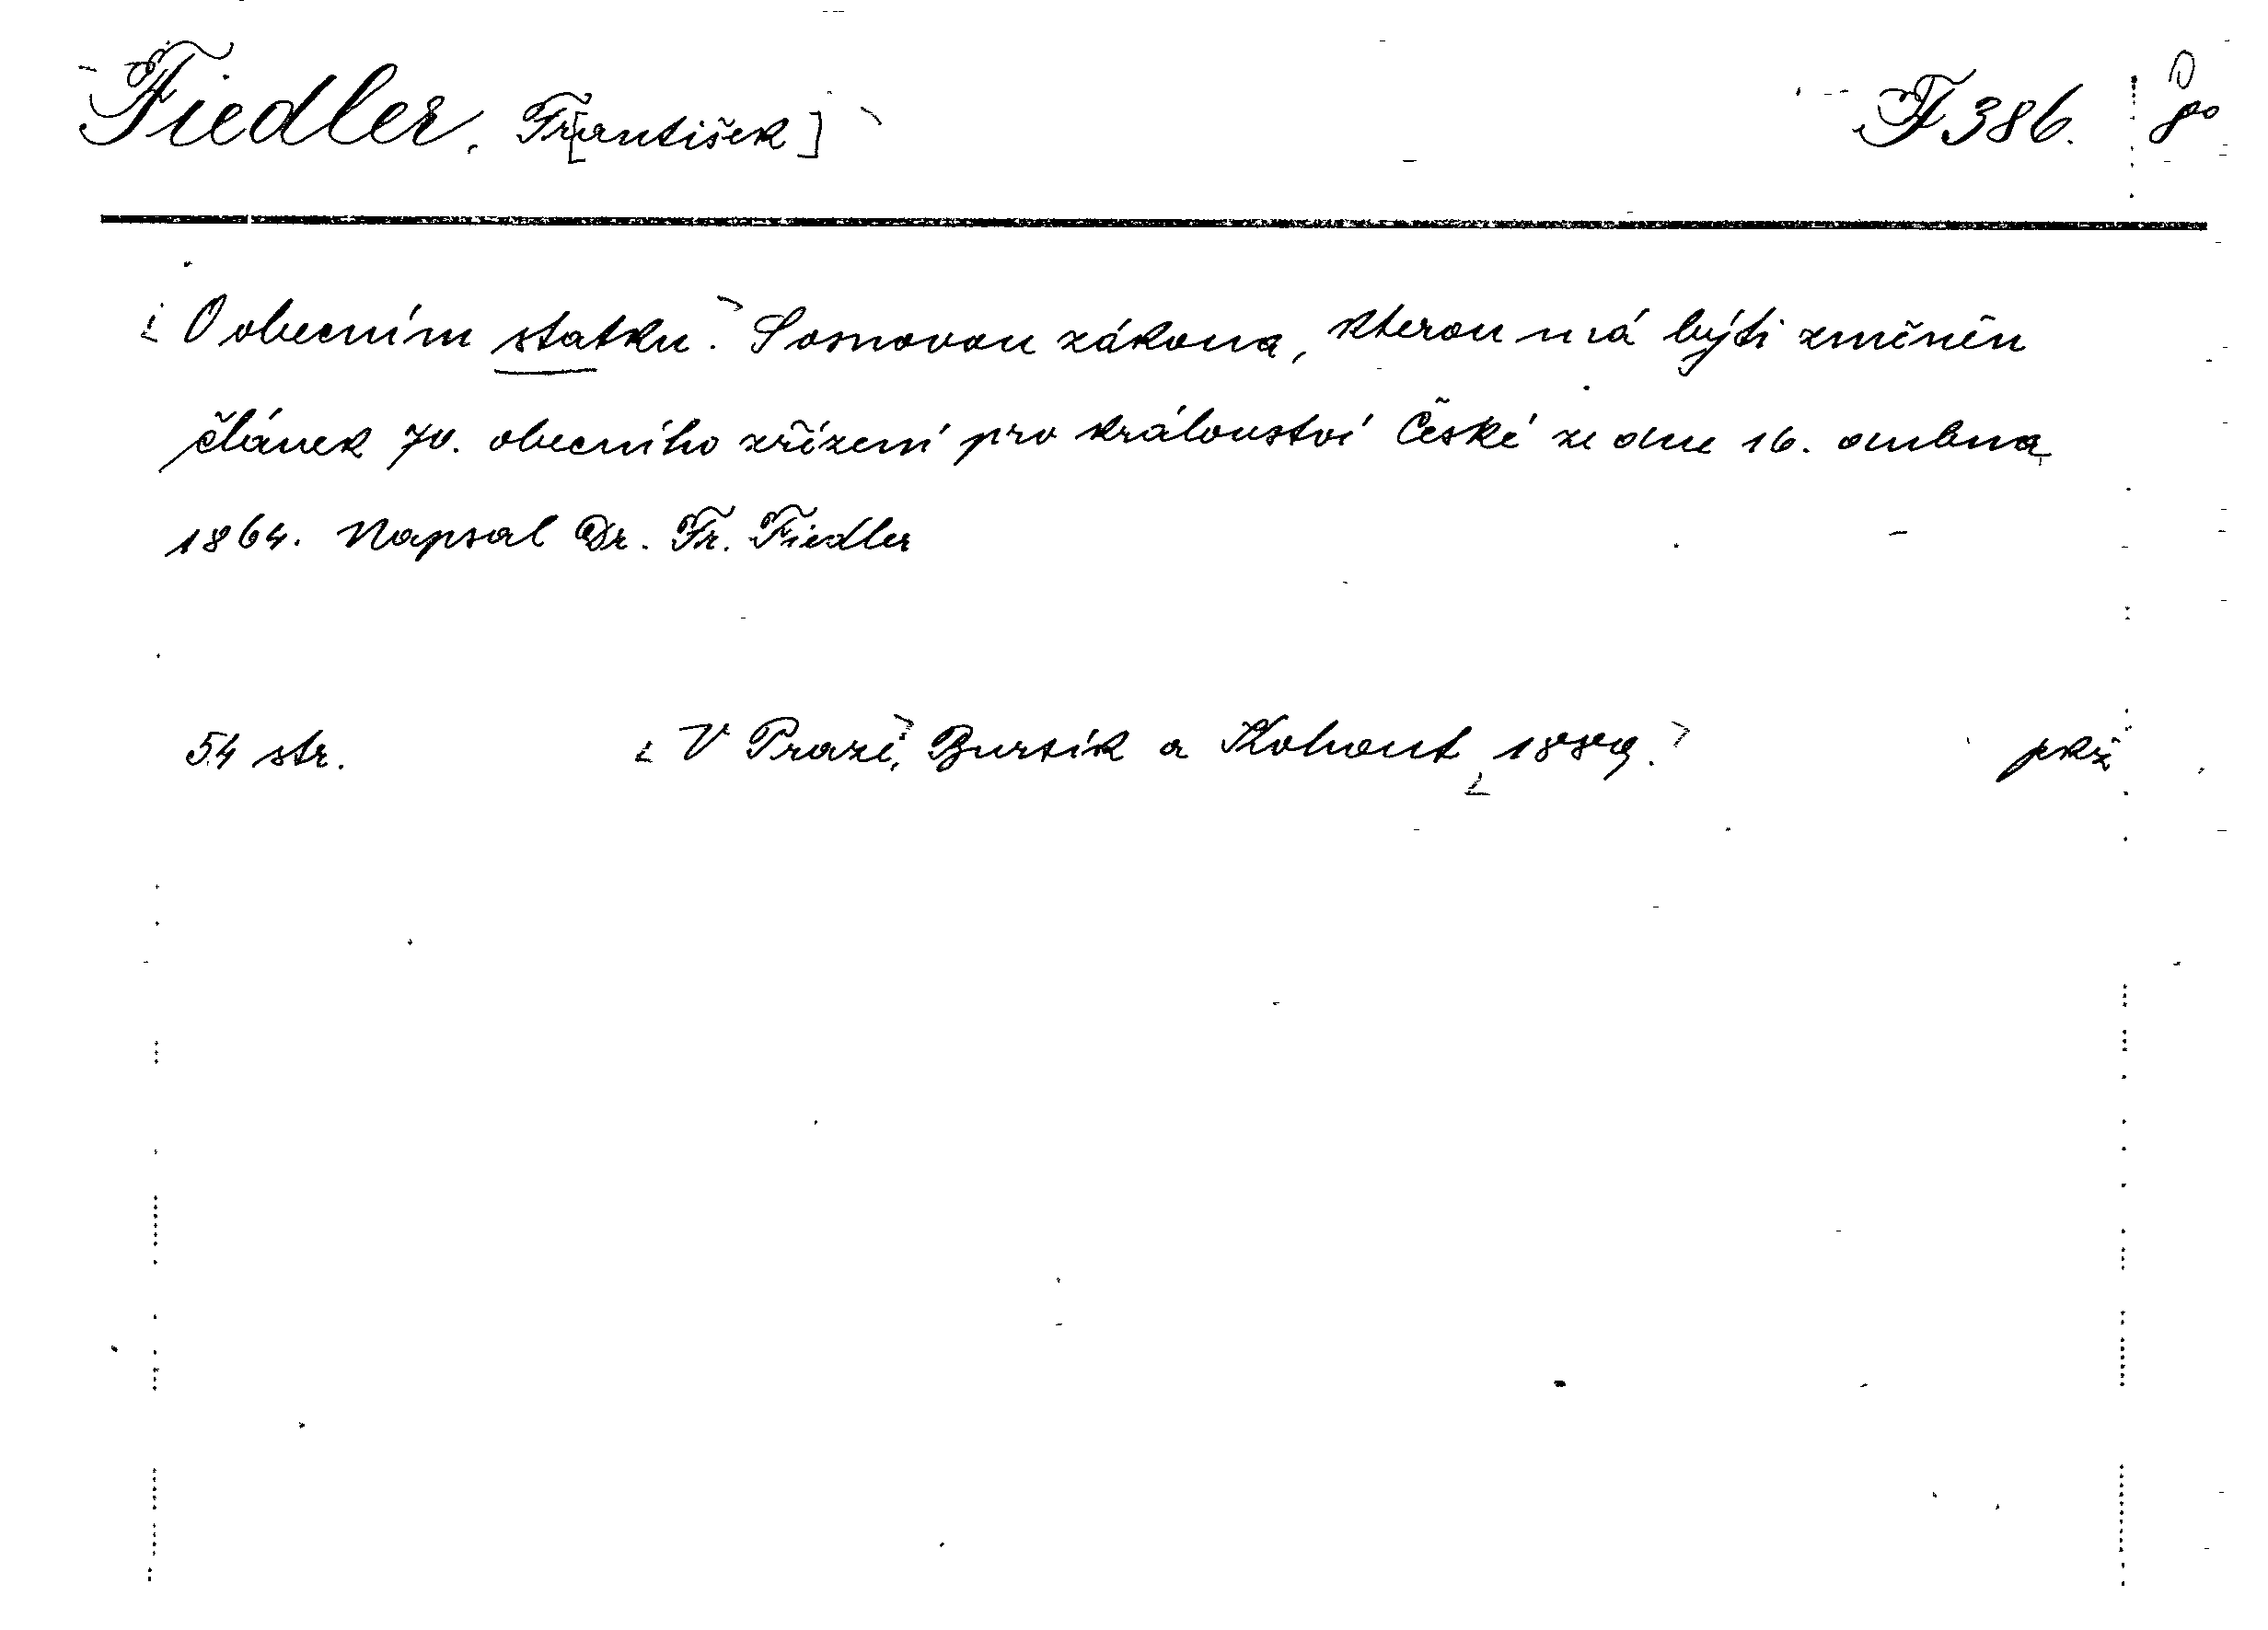 Fiedler, Fr[antišek] F 386. 8°
O obecním statku. S osnovou zákona, kterou má býti změněn
článek 70. obecního zřízení pro království České ze dne 16. dubna
1864. Napsal Dr. Fr. Fiedler
54 str. V Praze, Bursík a Kohout, 1889. pkž